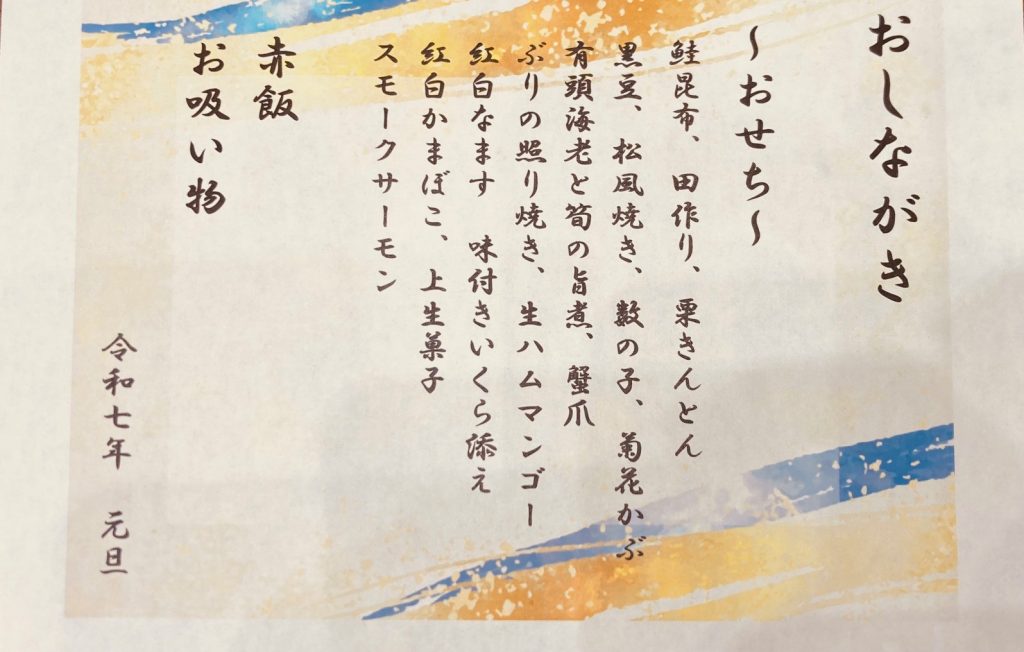 おしながき
～おせち～
鮭昆布、田作り、栗きんとん
黒豆、松風焼き、数の子、菊花かぶ
有頭海老と筍の旨煮、蟹爪
ぶりの照り焼き、生ハムマンゴー
紅白なます　味付きいくら添え
紅白かまぼこ、上生菓子
スモークサーモン
赤飯
お吸い物
令和七年　元旦